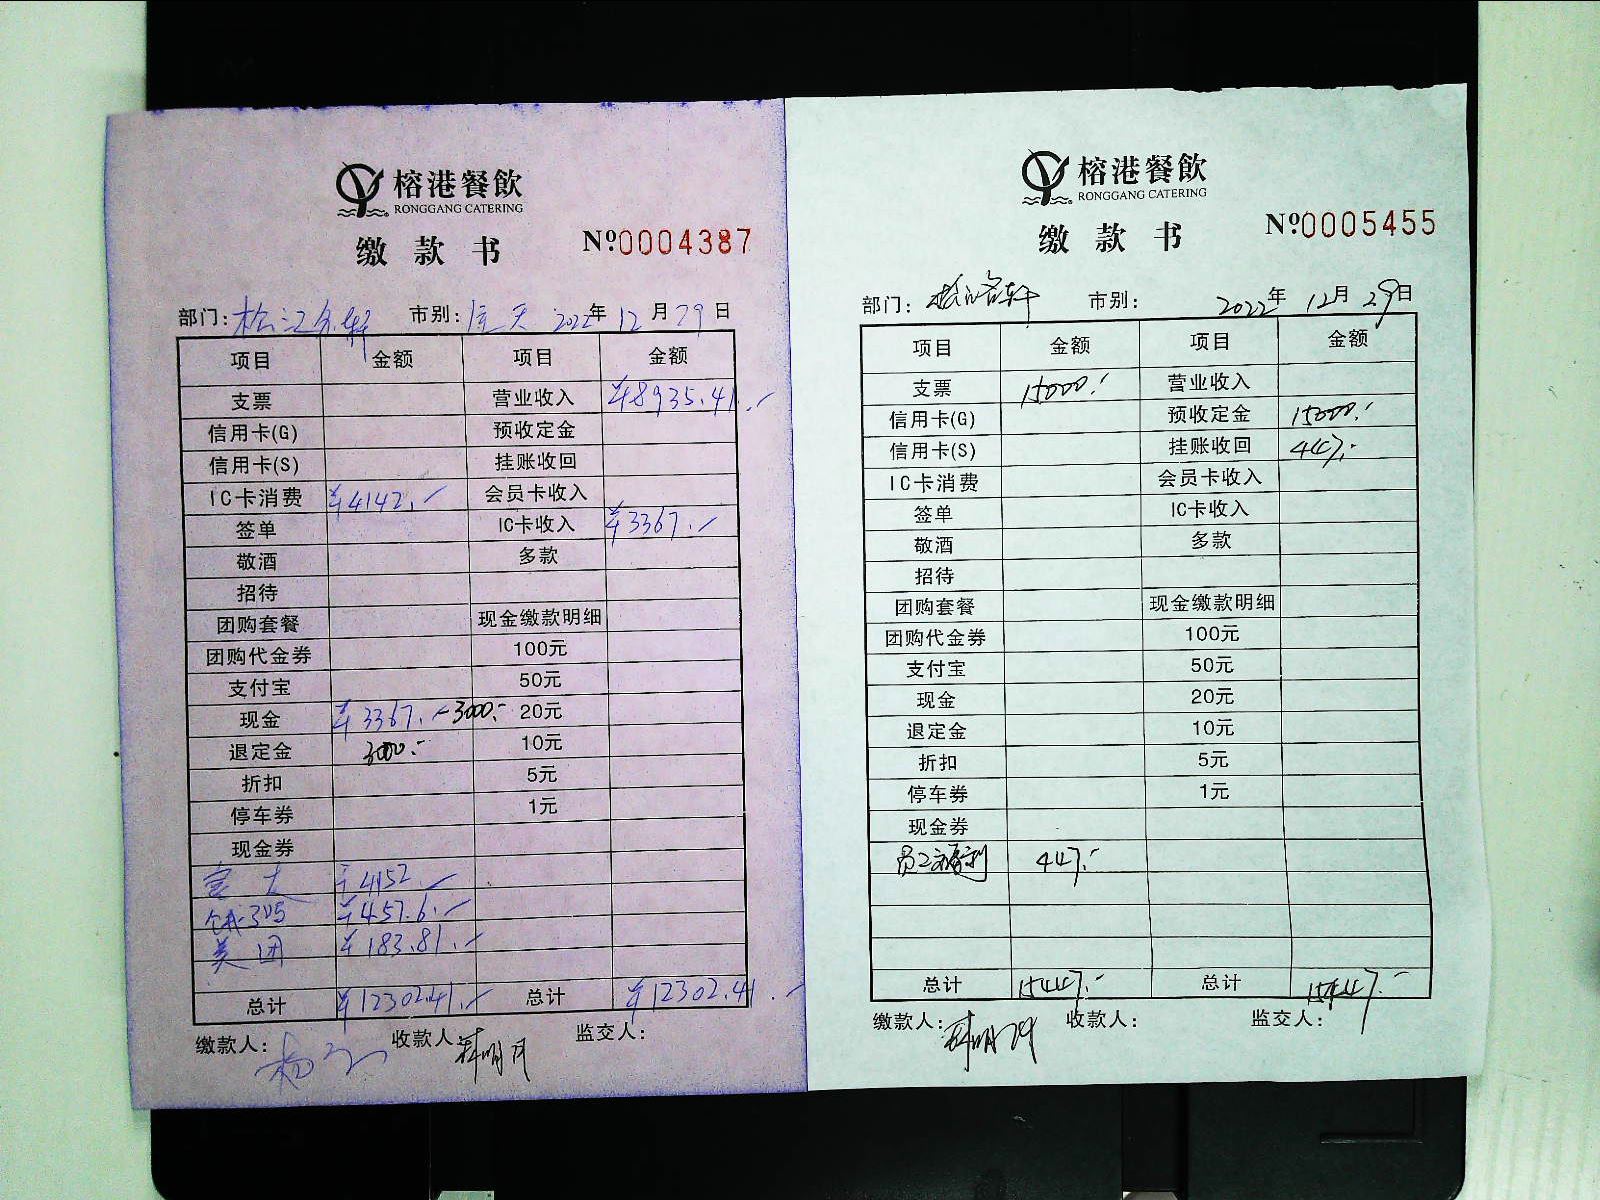 榕港餐飲
RONGGANG CATERING
缴款书
Nº0004387
部门: 市别: 2022年12月29日
项目 金额 项目 金额
支票 营业收入 ¥8935.41.-
信用卡(G) 预收定金
信用卡(S) 挂账收回
IC卡消费 ¥4142.- 会员卡收入
签单 IC卡收入 ¥3367.-
敬酒 多款
招待
团购套餐 现金缴款明细
团购代金券 100元
支付宝 50元
现金 ¥3367.- -3000.- 20元
退定金 3000.- 10元
折扣 5元
停车券 1元
现金券
¥4152.-
¥457.6.-
美团 ¥183.81.-
总计 ¥12302.41.- 总计 ¥12302.41.-
缴款人: 收款人 监交人:
榕港餐飲
RONGGANG CATERING
缴款书
Nº0005455
部门: 市别: 2022年12月29日
项目 金额 项目 金额
支票 15000.- 营业收入
信用卡(G) 预收定金 15000.-
信用卡(S) 挂账收回 447.-
IC卡消费 会员卡收入
签单 IC卡收入
敬酒 多款
招待
团购套餐 现金缴款明细
团购代金券 100元
支付宝 50元
现金 20元
退定金 10元
折扣 5元
停车券 1元
现金券
员工福利 447.-
总计 15447.- 总计 15447.-
缴款人: 收款人: 监交人: